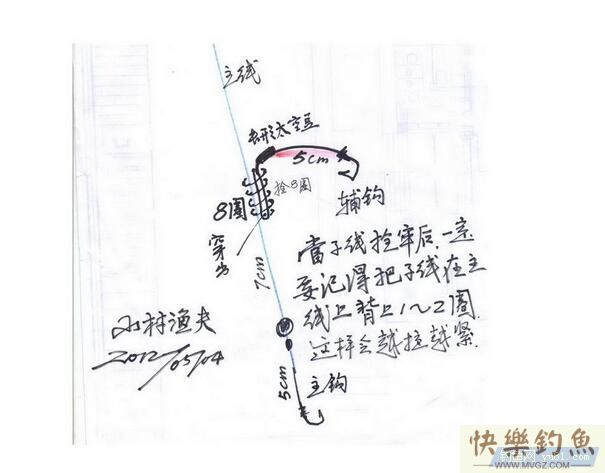 主线
形太空豆
5cm
拴8圈
8圈
辅钩
穿出
7cm
當子线拴牢后,一定
要记得把子线在主
线上背上1~2圈.
这样会越拉越紧.
小村渔夫
2012/05/04
5cm
主钩
快樂釣魚
WWW.MVGZ.COM